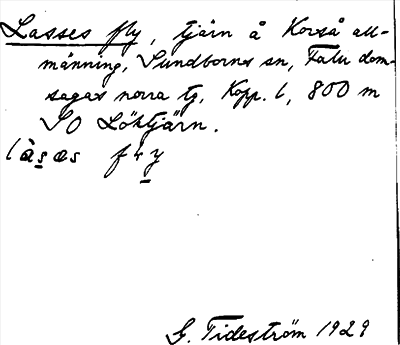 Lasses fly, tjärn å Korså all-
männing, Sundborns sn, Falu dom-
sagas norra tg, Kopp. l, 800 m
SO Löktjärn.
làsas fly
G. Tideström 1929